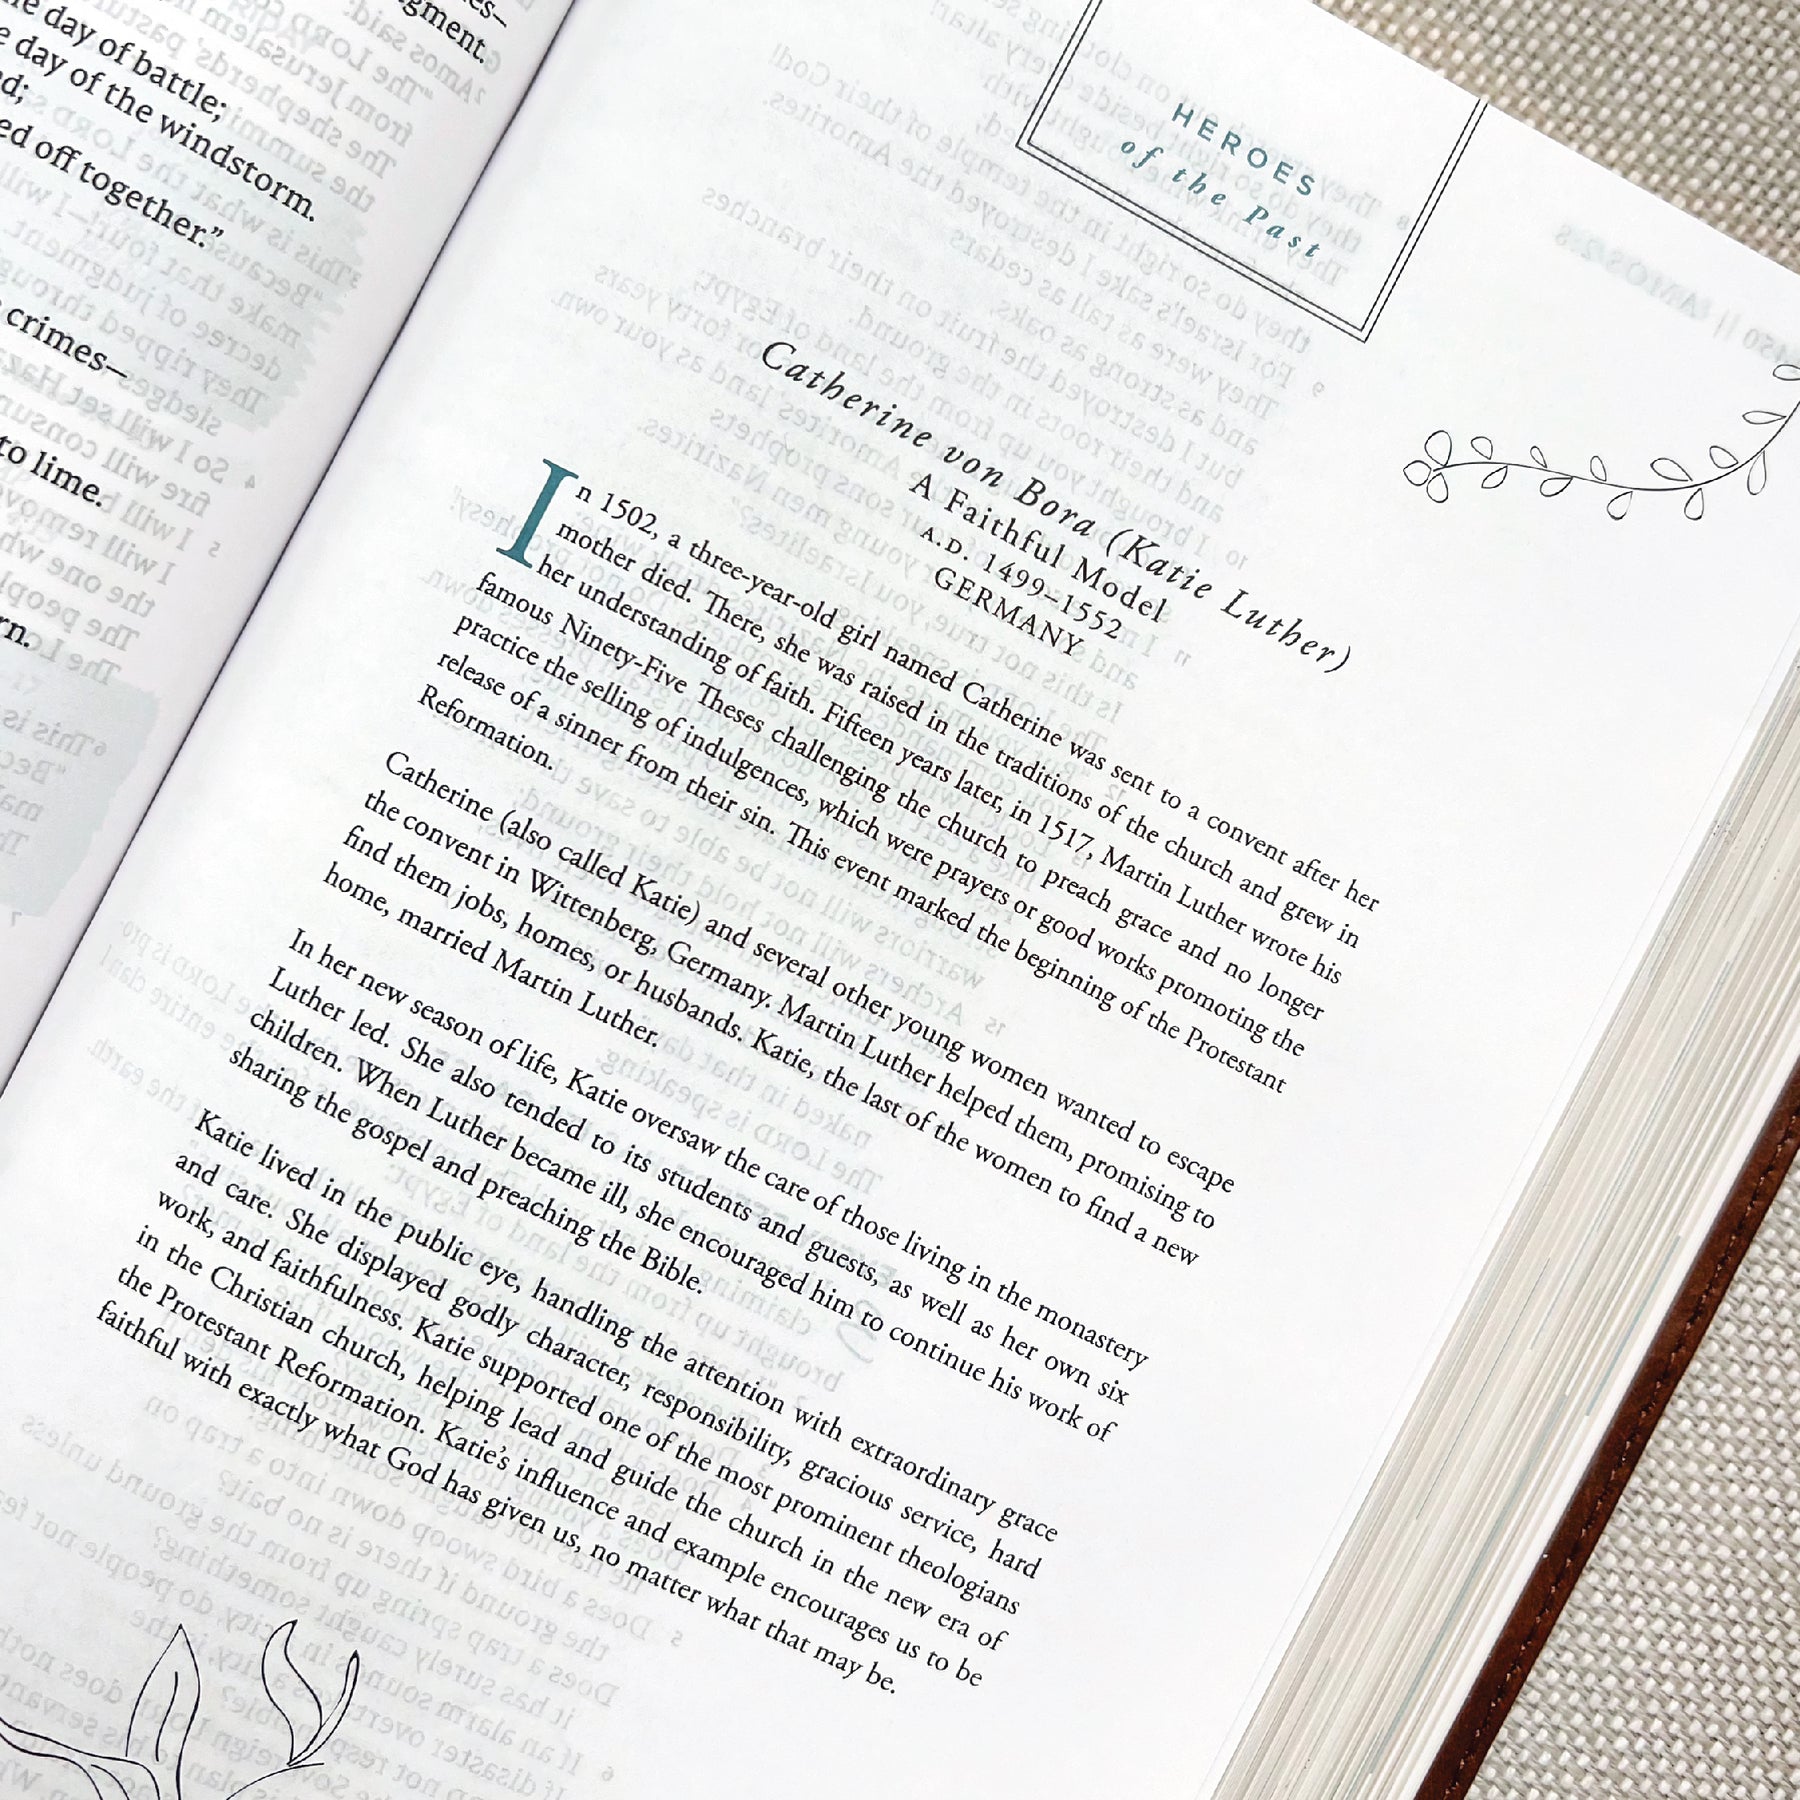 es–
gment.
e day of battle;
e day of the windstorm.
ed off together.”
crimes–
to lime.
HEROES
of the Past
Catherine von Bora (Katie Luther)
A Faithful Model
A.D. 1499–1552
GERMANY
In 1502, a three-year-old girl named Catherine was sent to a convent after her
mother died. There, she was raised in the traditions of the church and grew in
her understanding of faith. Fifteen years later, in 1517, Martin Luther wrote his
famous Ninety-Five Theses challenging the church to preach grace and no longer
practice the selling of indulgences, which were prayers or good works promoting the
release of a sinner from their sin. This event marked the beginning of the Protestant
Reformation.
Catherine (also called Katie) and several other young women wanted to escape
the convent in Wittenberg, Germany. Martin Luther helped them, promising to
find them jobs, homes, or husbands. Katie, the last of the women to find a new
home, married Martin Luther.
In her new season of life, Katie oversaw the care of those living in the monastery
Luther led. She also tended to its students and guests, as well as her own six
children. When Luther became ill, she encouraged him to continue his work of
sharing the gospel and preaching the Bible.
Katie lived in the public eye, handling the attention with extraordinary grace
and care. She displayed godly character, responsibility, gracious service, hard
work, and faithfulness. Katie supported one of the most prominent theologians
in the Christian church, helping lead and guide the church in the new era of
the Protestant Reformation. Katie’s influence and example encourages us to be
faithful with exactly what God has given us, no matter what that may be.